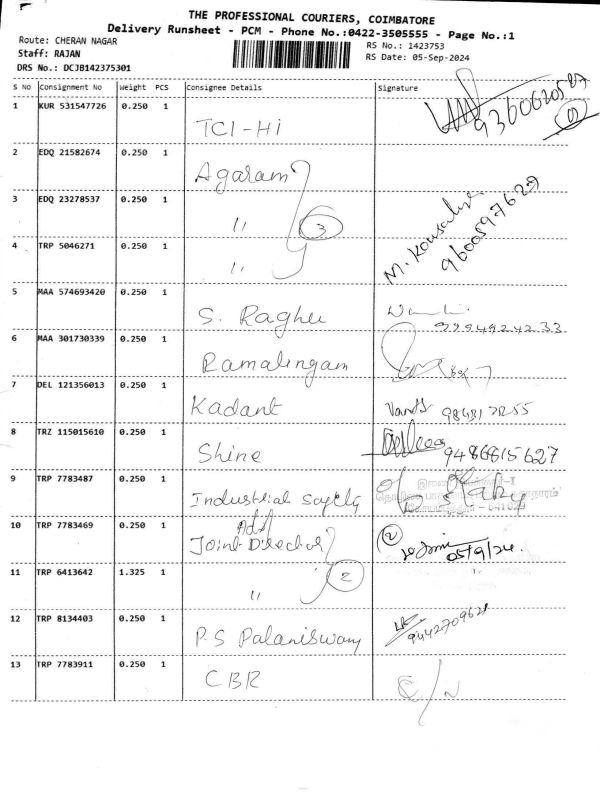 THE PROFESSIONAL COURIERS, COIMBATORE
Delivery Runsheet - PCM - Phone No.:0422-3505555 - Page No.:1
Route: CHERAN NAGAR
RS No.: 1423753
Staff: RAJAN
RS Date: 05-Sep-2024
DRS No.: DCJB142375301
S No Consignment No Weight PCS Consignee Details Signature
1 KUR 531547726 0.250 1 TCI-Hi 9360620587
2 EDQ 21582674 0.250 1 Agaram
3 EDQ 23278537 0.250 1 " 3 M. Kousalya 9600597629
4 TRP 5046271 0.250 1 "
5 MAA 574693420 0.250 1 S. Raghu
6 MAA 301730339 0.250 1 Ramalingam
7 DEL 121356013 0.250 1 Kadant
8 TRZ 115015610 0.250 1 Shine 9486815627
9 TRP 7783487 0.250 1 Industrial Safety
10 TRP 7783469 0.250 1 Add Joint Director 2 05/9/24.
11 TRP 6413642 1.325 1 " 2
12 TRP 8134403 0.250 1 P.S Palaniswamy 9442709621
13 TRP 7783911 0.250 1 CBR